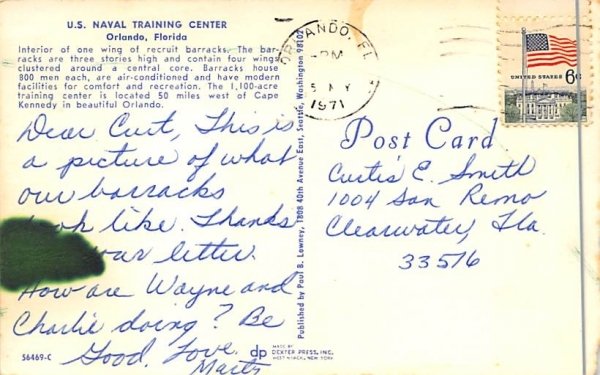 U.S. NAVAL TRAINING CENTER
Orlando, Florida
Interior of one wing of recruit barracks. The bar-
racks are three stories high and contain four wings
clustered around a central core. Barracks house
800 men each, are air-conditioned and have modern
facilities for comfort and recreation. The 1,100-acre
training center is located 50 miles west of Cape
Kennedy in beautiful Orlando.
Dear Curt, This is
a picture of what
our barracks
look like. Thanks
your letter.
How are Wayne and
Charlie doing? Be
Good. Love.
56469-C
Published by Paul B. Lowney, 1808 40th Avenue East, Seattle, Washington 98102
dp
MADE BY
DEXTER PRESS, INC.
WEST NYACK, NEW YORK
ORLANDO, FL
PM
5 MY
1971
UNITED STATES 6c
Post Card
Curtis E. Smith
1004 San Remo
Clearwater, Fla.
33516